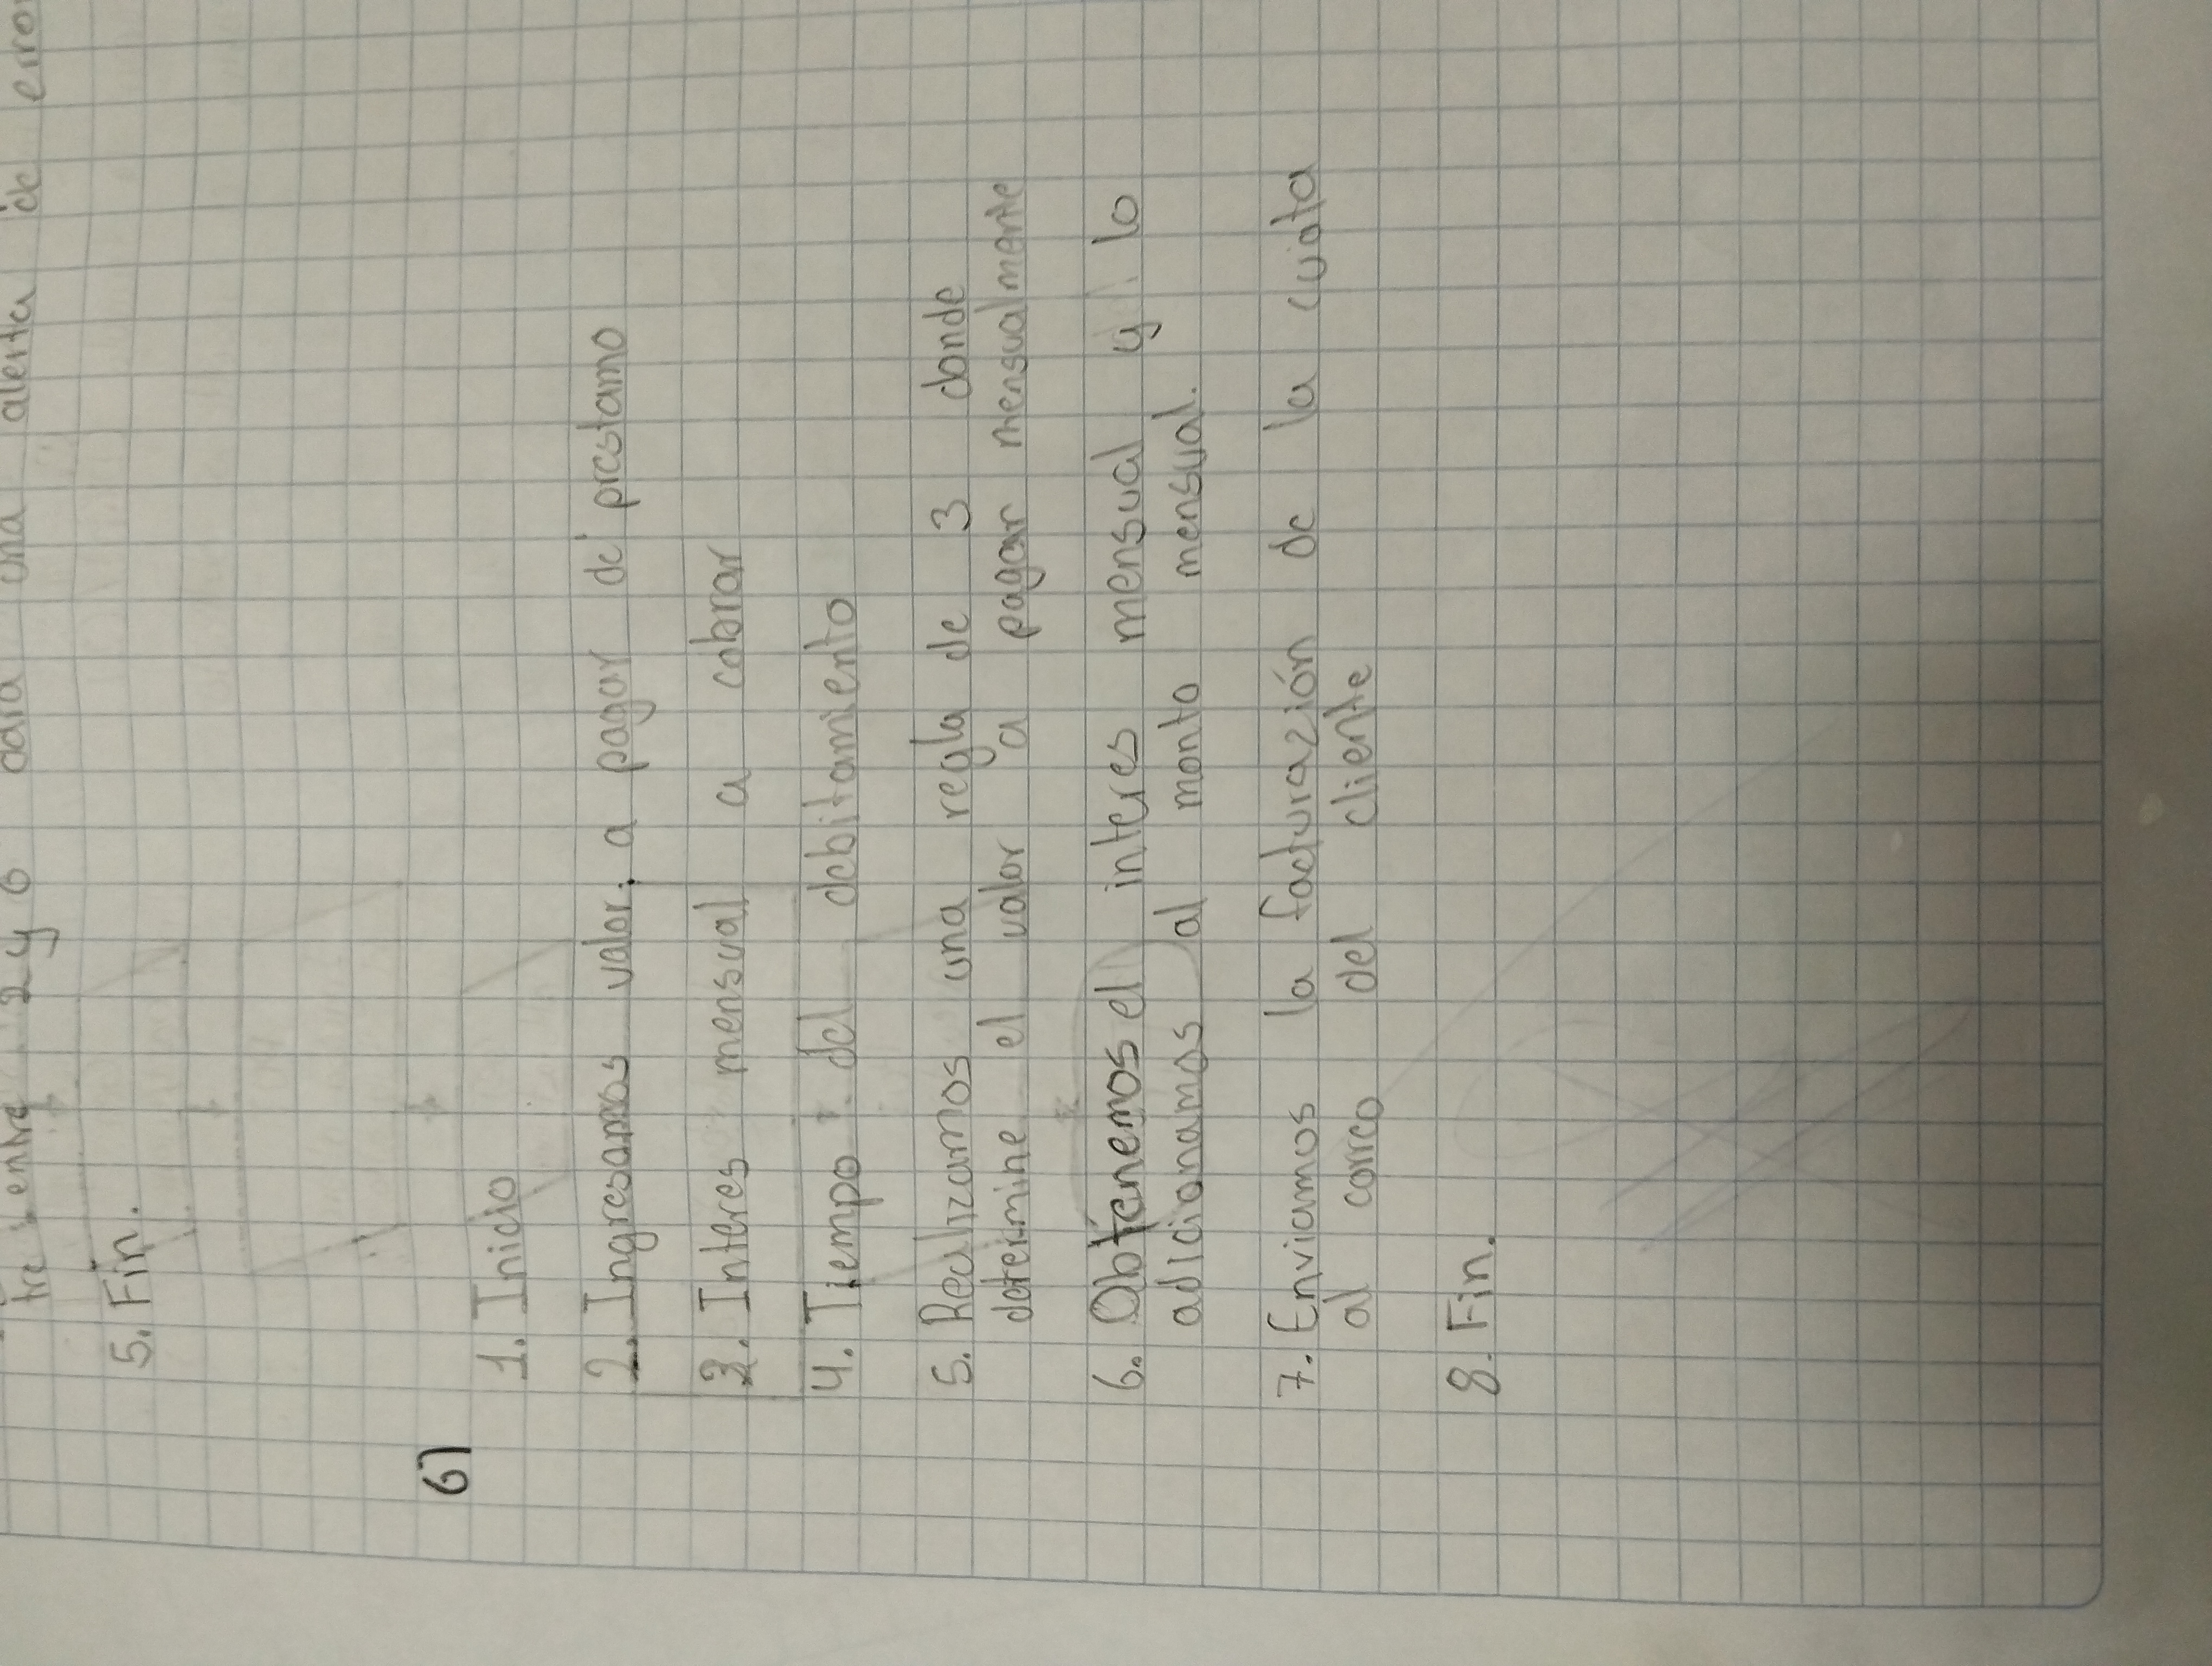 dara una alerta de error
tre entre 2 y 6
5. Fin.
6)
1. Inicio
2. Ingresamos valor a pagar de prestamo
3. Interes mensual a cobrar
4. Tiempo del debitamiento
5. Realizamos una regla de 3 donde
determine el valor a pagar mensualmente
6. Obtenemos el interes mensual y lo
adicionamos al monto mensual.
7. Enviamos la facturazión de la cuota
al correo del cliente
8. Fin.